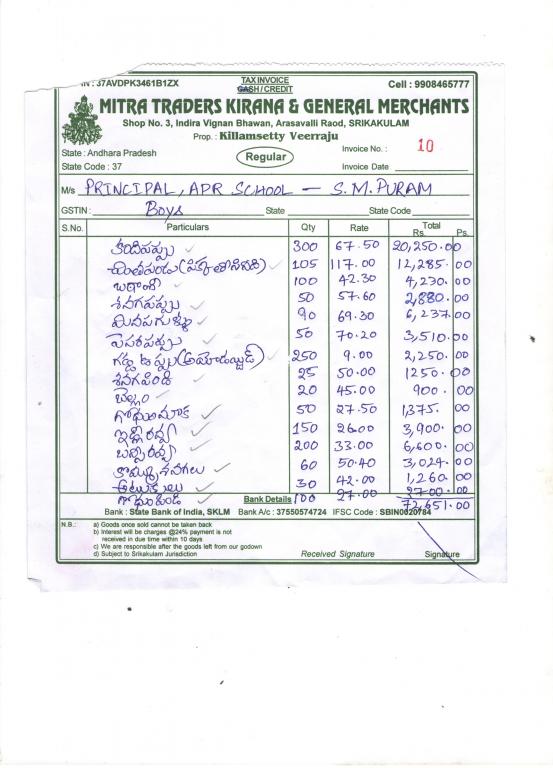 IN : 37AVDPK3461B1ZX
TAX INVOICE
CASH / CREDIT
Cell : 9908465777
MITRA TRADERS KIRANA & GENERAL MERCHANTS
Shop No. 3, Indira Vignan Bhawan, Arasavalli Raod, SRIKAKULAM
Prop. : Killamsetty Veerraju
State : Andhra Pradesh
State Code : 37
Regular
Invoice No. : 10
Invoice Date
M/s PRINCIPAL, APR SCHOOL — S.M. PURAM
GSTIN : Boys State State Code
S.No. Particulars Qty Rate Total Rs. Ps.
కందిపప్పు 300 67.50 20,250.00
చింతపండు (పిక్కతీసినది) 105 117.00 12,285.00
బఠాణీ 100 42.30 4,230.00
శనగపప్పు 50 57.60 2,880.00
మినపగుళ్ళు 90 69.30 6,237.00
పెసరపప్పు 50 70.20 3,510.00
గళ్ళు ఉప్పు (అయోడైజ్డ్) 250 9.00 2,250.00
శనగపిండి 25 50.00 1250.00
బెల్లం 20 45.00 900.00
గోధుమనూక 50 27.50 1375.00
ఇడ్లీరవ్వ 150 26.00 3,900.00
బన్సీరవ్వ 200 33.00 6,600.00
కొమ్ముశనగలు 60 50.40 3,024.00
అటుకులు 30 42.00 1,260.00
గోధుమపిండి 100 27.00 2700.00
Bank Details
72,651.00
Bank : State Bank of India, SKLM Bank A/c : 37550574724 IFSC Code : SBIN0020784
N.B.: a) Goods once sold cannot be taken back
b) Interest will be charges @24% payment is not
received in due time within 10 days
c) We are responsible after the goods left from our godown
d) Subject to Srikakulam Jurisdiction
Received Signature
Signature